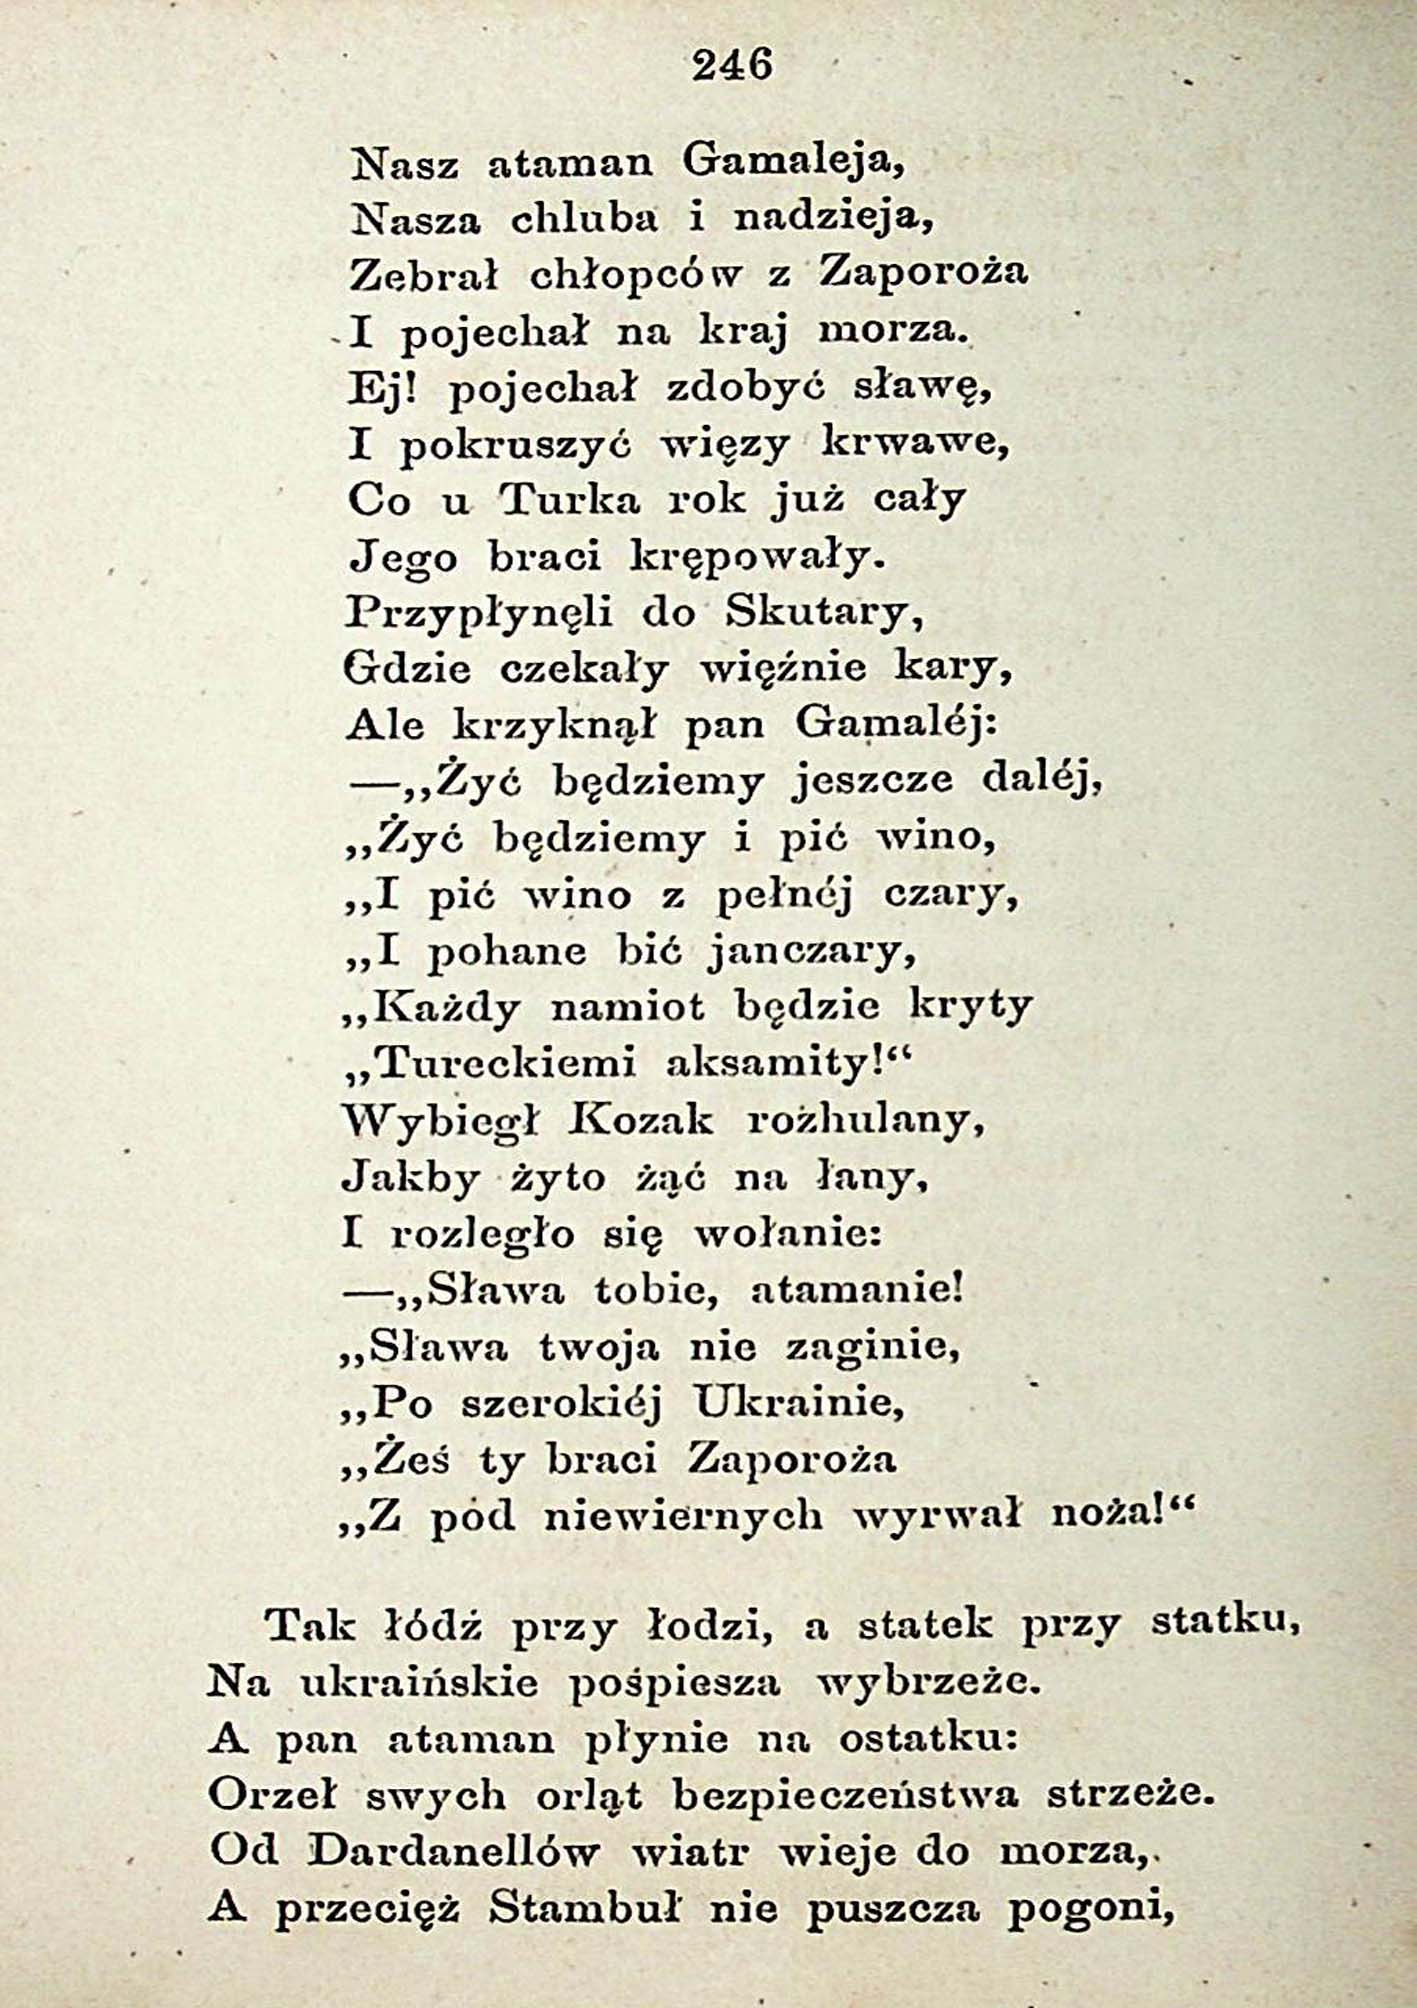 246
Nasz ataman Gamaleja,
Nasza chluba i nadzieja,
Zebrał chłopców z Zaporoża
I pojechał na kraj morza.
Ej! pojechał zdobyć sławę,
I pokruszyć więzy krwawe,
Co u Turka rok już cały
Jego braci krępowały.
Przypłynęli do Skutary,
Gdzie czekały więźnie kary,
Ale krzyknął pan Gamaléj:
—„Żyć będziemy jeszcze daléj,
„Żyć będziemy i pić wino,
„I pić wino z pełnéj czary,
„I pohane bić janczary,
„Każdy namiot będzie kryty
„Tureckiemi aksamity!“
Wybiegł Kozak rozhulany,
Jakby żyto żąć na łany,
I rozległo się wołanie:
—„Sława tobie, atamanie!
„Sława twoja nie zaginie,
„Po szerokiéj Ukrainie,
„Żeś ty braci Zaporoża
„Z pod niewiernych wyrwał noża!“
Tak łódź przy łodzi, a statek przy statku,
Na ukraińskie pośpiesza wybrzeże.
A pan ataman płynie na ostatku:
Orzeł swych orląt bezpieczeństwa strzeże.
Od Dardanellów wiatr wieje do morza,
A przecięż Stambuł nie puszcza pogoni,